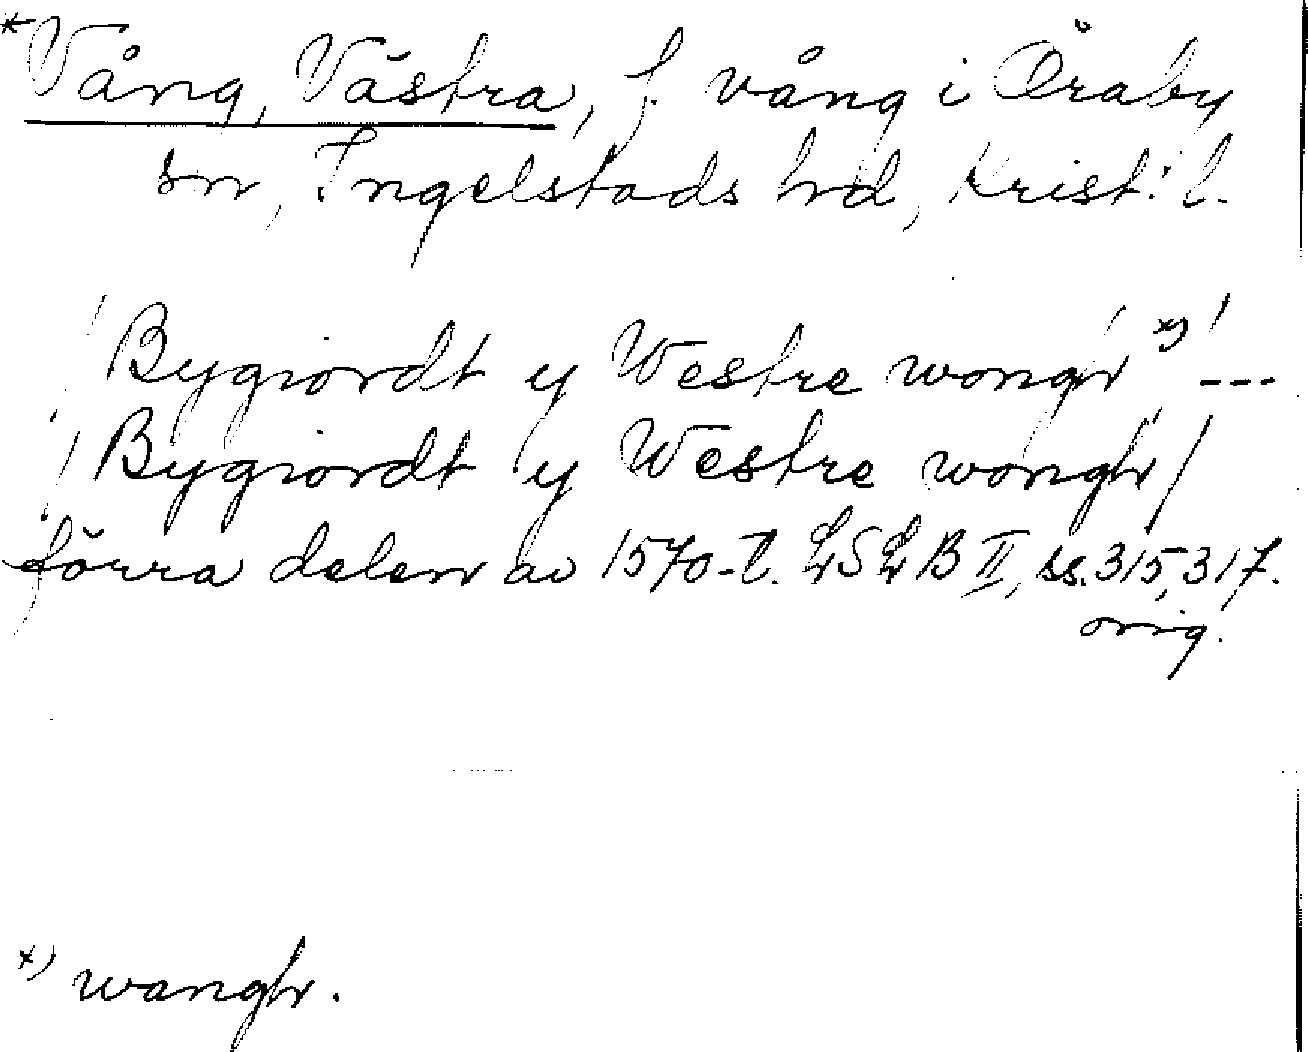 *Vång, Västra, f. vång i Öraby
sn, Ingelstads hrd, Krist: l.
/Bygiordt y Westre wongh x)/ ---
/Bygiordt y Westre wongh/
förra delen av 1570-t. LSLB II, ss. 315, 317.
orig.
x) wangh.